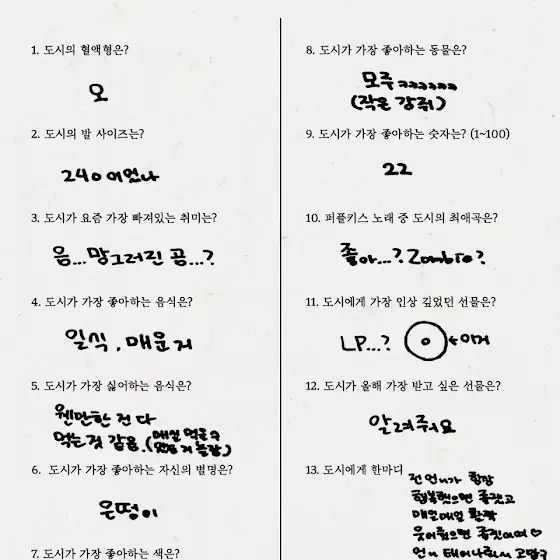 1. 도시의 혈액형은?
오
2. 도시의 발 사이즈는?
240 이었나
3. 도시가 요즘 가장 빠져있는 취미는?
음...망그러진 곰...?
4. 도시가 가장 좋아하는 음식은?
일식, 매운거
5. 도시가 가장 싫어하는 음식은?
웬만한 건 다
먹는것 같음.(매실 먹을수
있는거 놀람)
6. 도시가 가장 좋아하는 자신의 별명은?
은떵이
7. 도시가 가장 좋아하는 색은?
8. 도시가 가장 좋아하는 동물은?
모쭈ㅋㅋㅋㅋㅋㅋ
(작은 강쥐)
9. 도시가 가장 좋아하는 숫자는? (1~100)
22
10. 퍼플키스 노래 중 도시의 최애곡은?
좋아...? Zombie?
11. 도시에게 가장 인상 깊었던 선물은?
LP...? ←이거
12. 도시가 올해 가장 받고 싶은 선물은?
알려줘요
13. 도시에게 한마디
전 언니가 항상
행복했으면 좋겠고
매일매일 활짝
웃어줬으면 좋겠어여♡
언니 태어나줘서 고맙